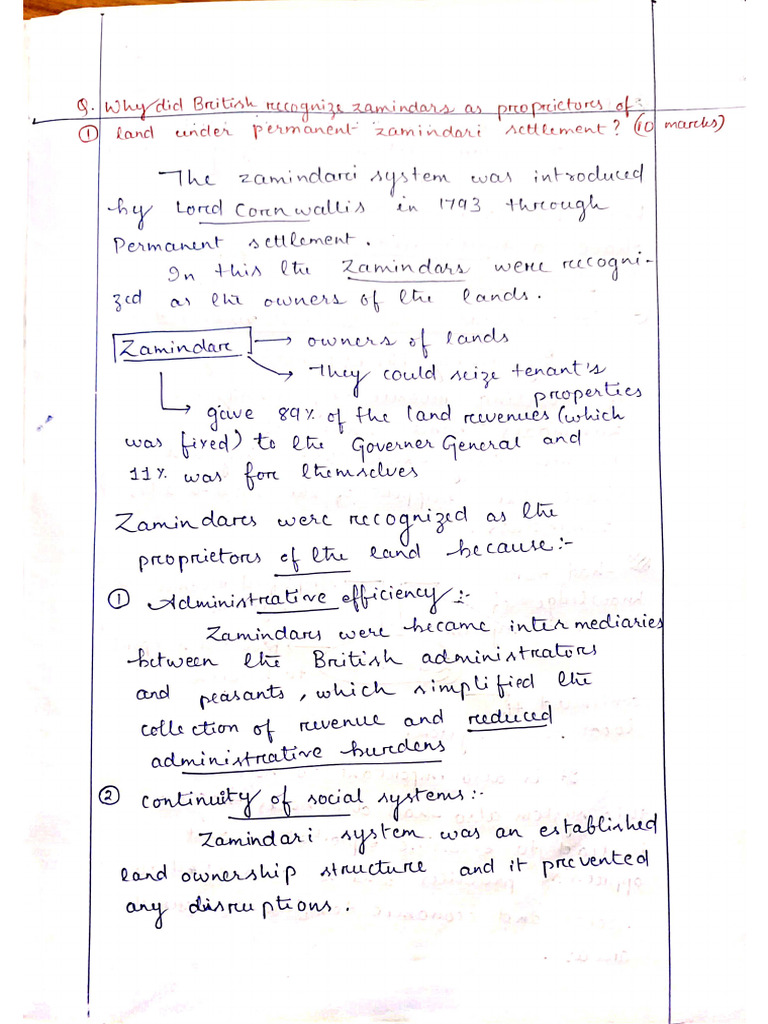 Q. Why did British recognize zamindars as proprietors of
① land under permanent zamindari settlement? (10 marks)
The zamindari system was introduced
by Lord Cornwallis in 1793 through
Permanent settlement.
In this the Zamindars were recogni-
zed as the owners of the lands.
Zamindar → owners of lands
→ They could seize tenant's
properties
→ gave 89% of the land revenues (which
was fixed) to the Governer General and
11% was for themselves
Zamindars were recognized as the
proprietors of the land because:-
① Administrative efficiency :-
Zamindars were became intermediaries
between the British administrators
and peasants, which simplified the
collection of revenue and reduced
administrative burdens.
② Continuity of social systems:-
Zamindari system was an established
land ownership structure and it prevented
any disruptions.